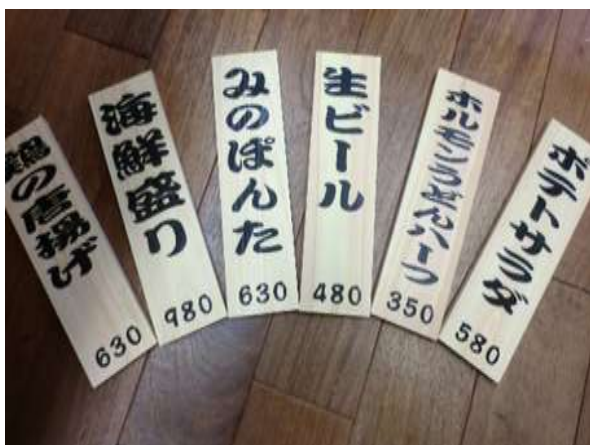 鶏の唐揚げ
630
海鮮盛り
980
みのぽんた
630
生ビール
480
ホルモンうどんハーフ
350
ポテトサラダ
580